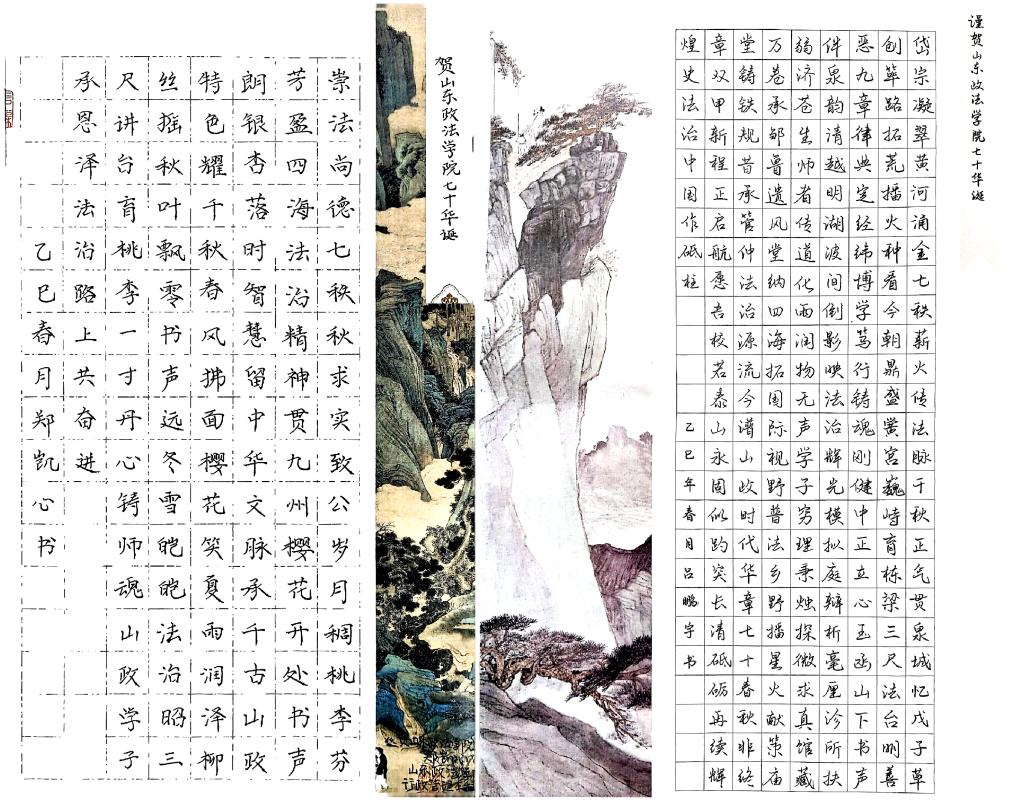 谨贺山东政法学院七十华诞
岱宗凝翠黄河涌金七秩薪火传法脉千秋正气贯泉城忆戊子草
创筚路拓荒播火种看今朝鼎盛黉宫巍峙育栋梁三尺法台明善
恶九章律典定经纬博学笃行铸魂刚健中正立心玉函山下书声
伴泉韵清越明湖波间倒影映法治辉光模拟庭辩析毫厘诊所扶
弱济苍生师者传道化雨润物无声学子穷理秉烛探微求真馆藏
万卷承邹鲁遗风堂纳四海拓国际视野普法乡野播星火献策庙
堂铸铁规昔承管仲法治源流今谱山政时代华章七十春秋非终
章双甲新程正启航愿吉校若泰山永固似趵突长清砥砺再续辉
煌史法治中国作砥柱 乙巳年春月吕鹏宇书
贺山东政法学院七十华诞
崇法尚德七秩秋求实致公岁月稠桃李芬
芳盈四海法治精神贯九州樱花开处书声
朗银杏落时智慧留中华文脉承千古山政
特色耀千秋春风拂面樱花笑夏雨润泽柳
丝摇秋叶飘零书声远冬雪皑皑法治昭三
尺讲台育桃李一寸丹心铸师魂山政学子
承恩泽法治路上共奋进
乙巳春月郑凯心书